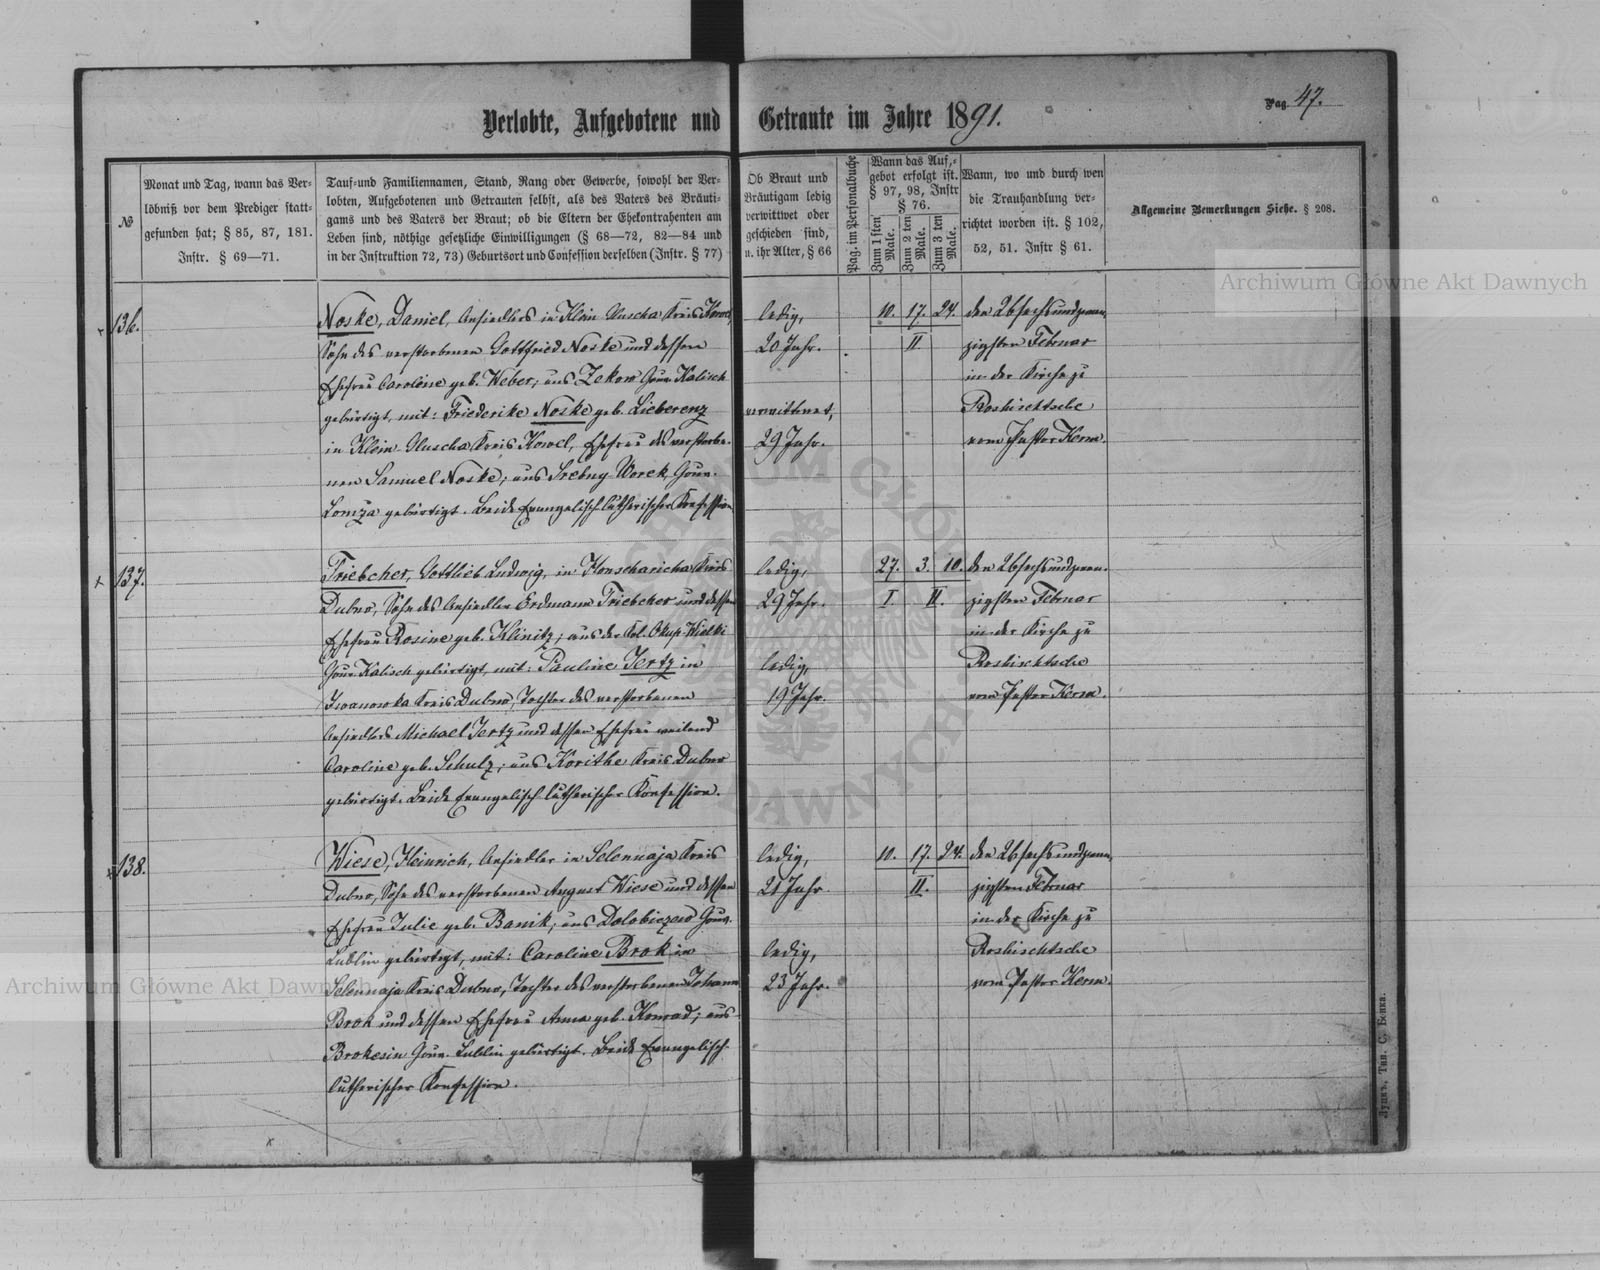 Pag. 47.
Verlobte, Aufgebotene und Getraute im Jahre 1891.
№
Monat und Tag, wann das Ver-
löbniß vor dem Prediger statt-
gefunden hat; § 85, 87, 181.
Instr. § 69—71.
Tauf-und Familiennamen, Stand, Rang oder Gewerbe, sowohl der Ver-
lobten, Aufgebotenen und Getrauten selbst, als des Vaters des Bräuti-
gams und des Vaters der Braut; ob die Eltern der Ehekontrahenten am
Leben sind, nöthige gesetzliche Einwilligungen (§ 68—72, 82—84 und
in der Instruktion 72, 73) Geburtsort und Confession derselben (Instr. § 77)
Ob Braut und
Bräutigam ledig
verwittwet oder
geschieden sind,
u. ihr Alter, § 66
Pag. im Personalbuche
Wann das Auf-
gebot erfolgt ist.
§ 97, 98, Instr
§ 76.
Zum 1 sten Male.
Zum 2 ten Male.
Zum 3 ten Male.
Wann, wo und durch wen
die Trauhandlung ver-
richtet worden ist. § 102,
52, 51. Instr § 61.
Allgemeine Bemerkungen Siehe. § 208.
136.
Noske, Daniel, Ansiedlers in Klein Gluscha Kreis Kowel,
Sohn des verstorbenen Gottfried Noske und dessen
Ehefrau Caroline geb. Weber, aus Zekow Gouv. Kalisch
gebürtigt, mit: Friederike Noske geb. Lieberenz
in Klein-Gluscha Kreis Kowel, Ehefrau des verstorbe-
nen Samuel Noske, aus Srebny Worek, Gouv.
Lomza gebürtigt. Beide Evangelisch-lutherischer Konfession
ledig,
20 Jahr.
verwittwet,
29 Jahr.
10. 17. 24.
II.
den 26 sechsundzwan-
zigsten Februar
in der Kirche zu
Roshischtsche
vom Pastor Kerm.
137.
Triebcher, Gottlieb Ludwig, in Konscharicha Kreis
Dubno, Sohn des Ansiedler Erdmann Triebcher und dessen
Ehefrau Rosine geb. Klinitz, aus der Kol. Okup-Wielki
Gouv. Kalisch gebürtigt, mit: Pauline Jertz in
Iwanowka Kreis Dubno, Tochter des verstorbenen
Ansiedlers Michael Jertz und dessen Ehefrau weiland
Caroline geb. Schulz, aus Korithe Kreis Dubno
gebürtigt. Beide Evangelisch-lutherischer Konfession.
ledig,
29 Jahr.
ledig,
19 Jahr.
27. 3. 10.
I. II.
den 26 sechsundzwan-
zigsten Februar
in der Kirche zu
Roshischtsche
vom Pastor Kerm.
138.
Wiese, Heinrich, Ansiedler in Selennaja Kreis
Dubno, Sohn des verstorbenen August Wiese und dessen
Ehefrau Julie geb. Banik, aus Dolobiczew Gouv.
Lublin gebürtigt, mit: Caroline Brok in
Selennaja Kreis Dubno, Tochter des verstorbenen Johann
Brok und dessen Ehefrau Anna geb. Konrad, aus
Brokesin Gouv. Lublin gebürtigt. Beide Evangelisch-
lutherischer Konfession.
ledig,
21 Jahr
ledig,
23 Jahr.
10. 17. 24.
II.
den 26 sechsundzwan-
zigsten Februar
in der Kirche zu
Roshischtsche
vom Pastor Kerm.
Луцкъ, Тип. С. Бонка.
Archiwum Główne Akt Dawnych
Archiwum Główne Akt Dawnych
ARCHIWUM GŁÓWNE
AKT DAWNYCH